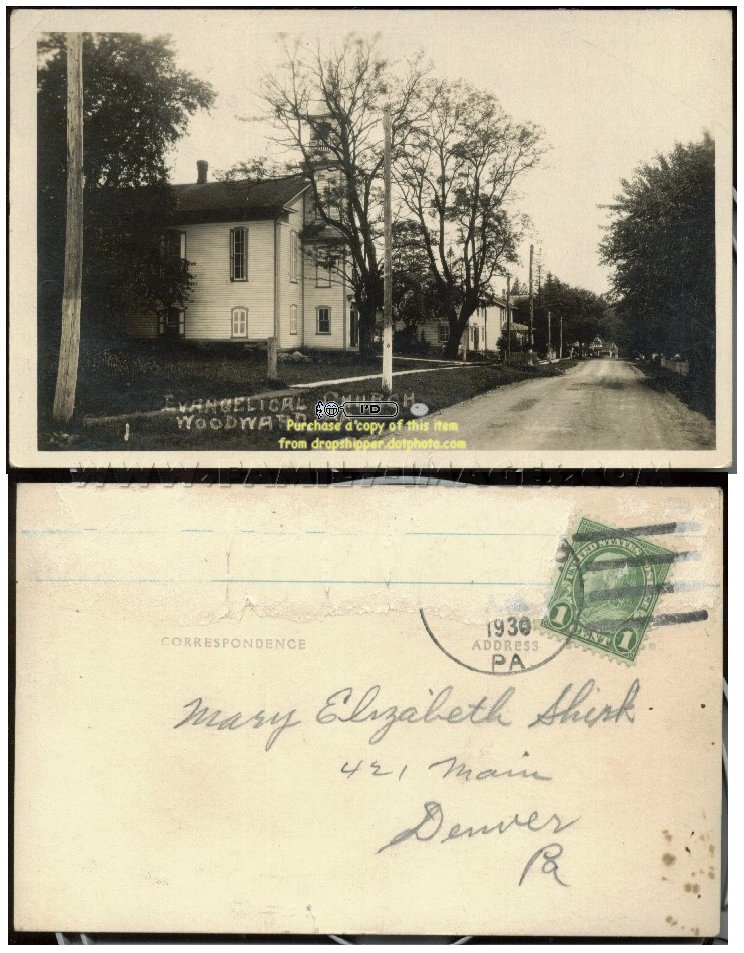 EVANGELICAL CHURCH
I'D
WOODWARD
Purchase a copy of this item
from dropshipper.dotphoto.com
CORRESPONDENCE
1930
ADDRESS
PA
UNITED STATES
1 CENT 1
Mary Elizabeth Shirk
421 Main
Denver
Pa